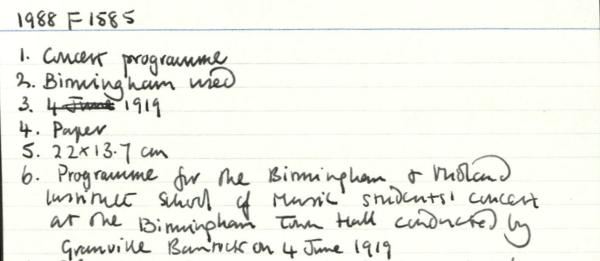 1988 F 1585
1. Concert programme
2. Birmingham used
3. 4 June 1919
4. Paper
5. 22 x 13.7 cm
6. Programme for the Birmingham & Midland
Institute School of Music students' concert
at the Birmingham Town Hall conducted by
Granville Bantock on 4 June 1919